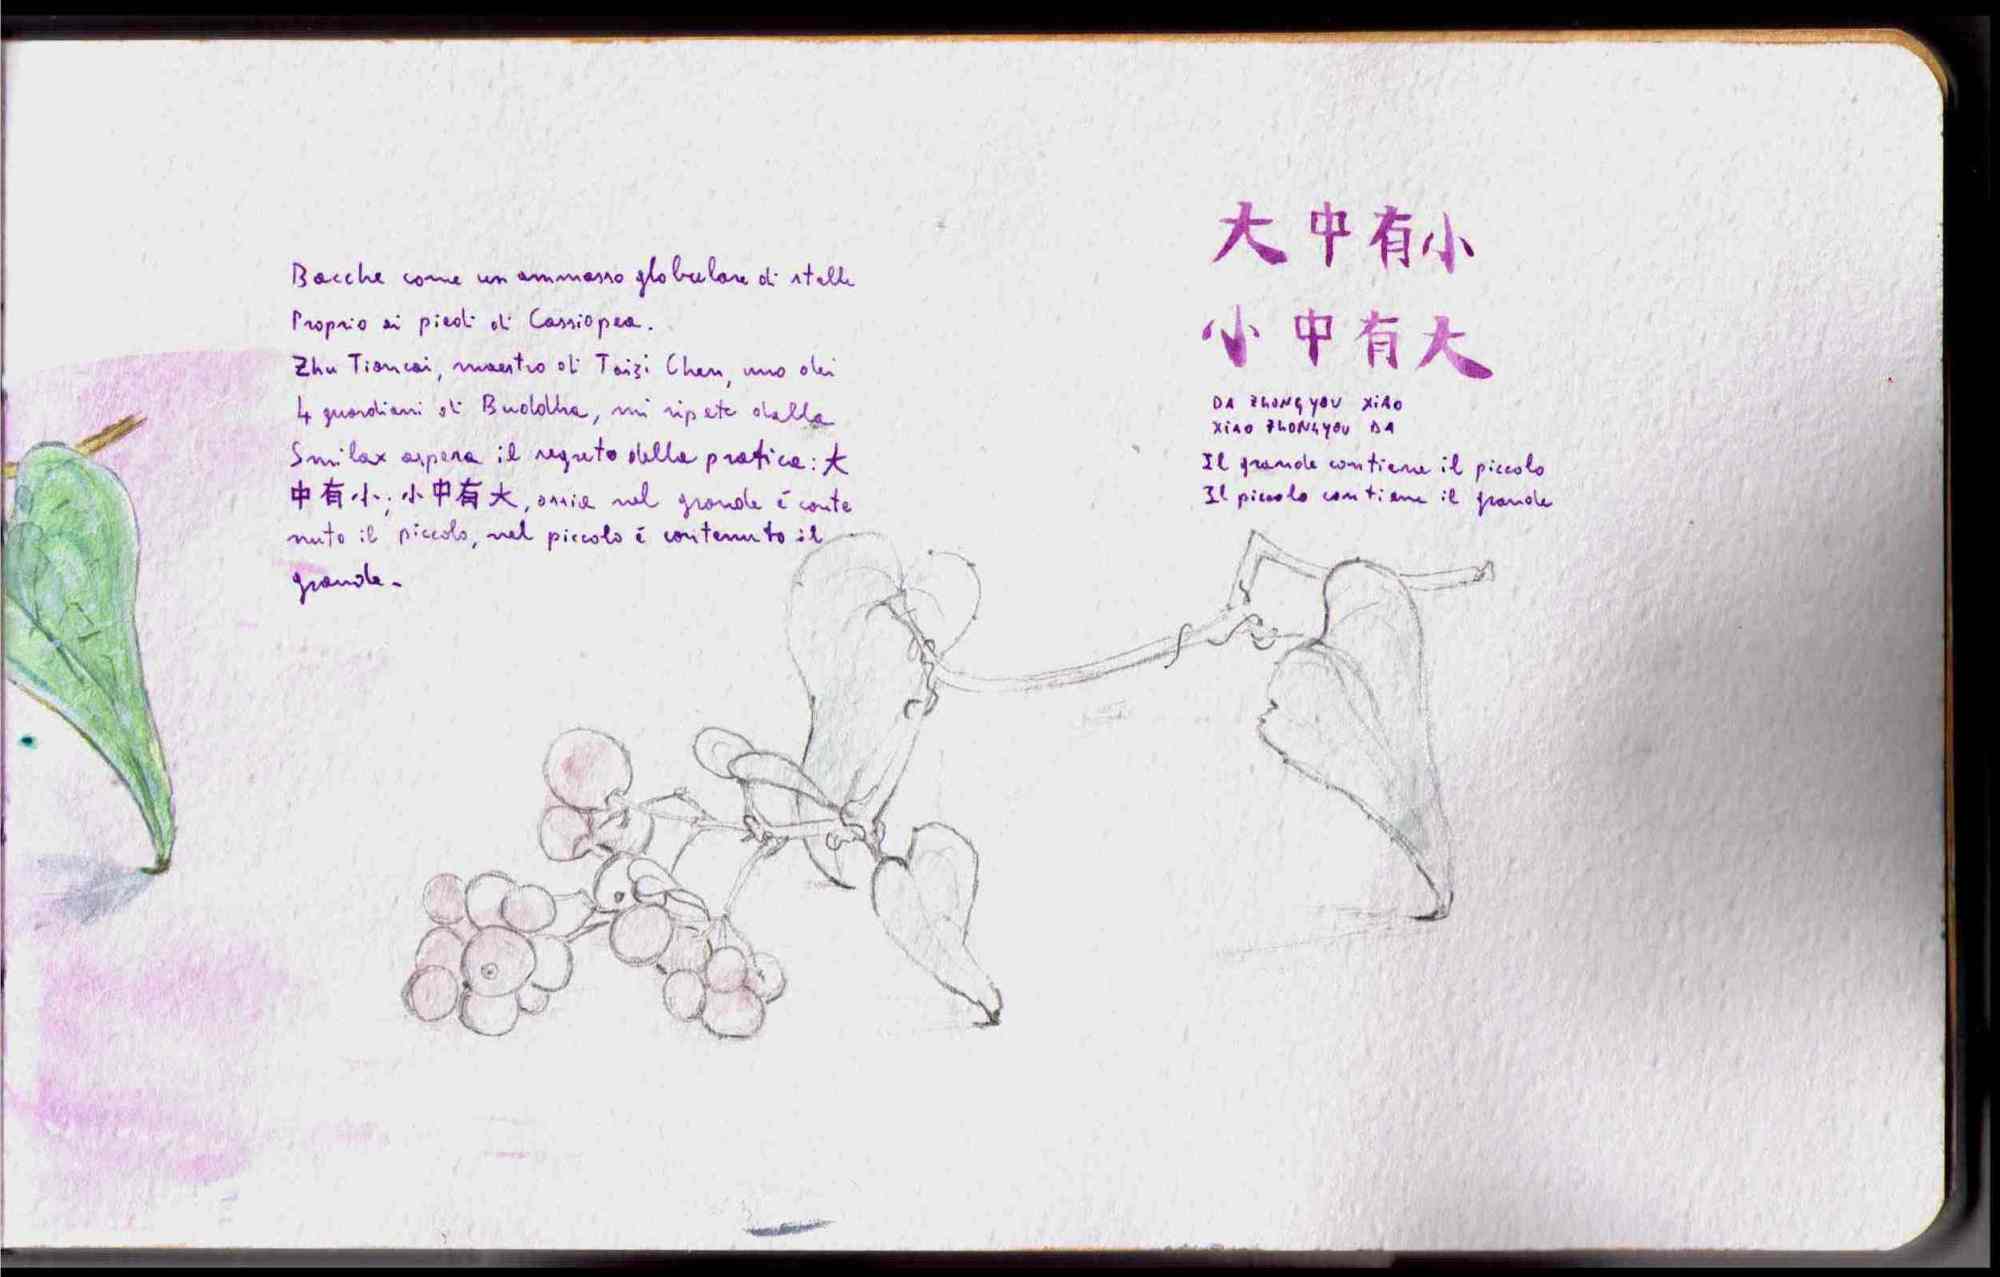 Bacche come un ammasso globulare di stelle
Proprio ai piedi di Cassiopea.
Zhu Tiancai, maestro di Taizi Chen, uno dei
4 guardiani di Buddha, mi ripete dalla
Smilax aspera il segreto della pratica: 大
中有小; 小中有大, ossia nel grande è conte
nuto il piccolo, nel piccolo è contenuto il
grande.
大中有小
小中有大
DA ZHONGYOU XiAO
XiAO ZHONGYOU DA
Il grande contiene il piccolo
Il piccolo contiene il grande